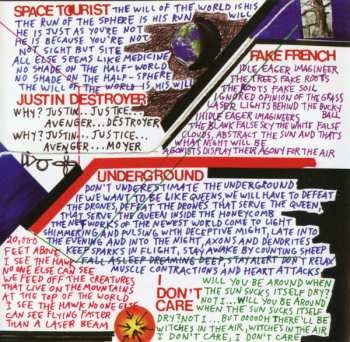 SPACE TOURIST THE WILL OF THE WORLD IS HIS
THE RUN OF THE SPHERE IS HIS RUN WILL
HE IS JUST AS YOU'RE NOT
HE IS BECAUSE YOU'RE NOT
NOT SIGHT BUT SITE
ALL ELSE SEEMS LIKE MEDICINE
NO SHADE ON THE HALF-WORLD
NO SHADE ON THE HALF-SPHERE
THE WILL OF THE WORLD IS HIS WILL
FAKE FRENCH
IDLE EAGER IMAGINEER
THE TREES FAKE ROOTS
THE ROOTS FAKE SOIL
IGNORED OPINION OF THE GRASS
LASER LIGHTS BEHIND THE BUCKY
BALL
IDLE EAGER IMAGINEERS
THE BLANK FALSE SKY THE WHITE FALSE
CLOUDS, ABSTRACT THE SUN AND THAT'S
WHAT NIGHT WILL BE
AGONISTS DISPLAY THEIR AGONY FOR THE AIR
JUSTIN DESTROYER
WHY? JUSTIN... JUSTICE...
AVENGER... DESTROYER
WHY? JUSTIN... JUSTICE...
AVENGER... MOYER
UNDERGROUND
DON'T UNDERESTIMATE THE UNDERGROUND
IF WE WANT TO BE LIKE QUEENS, WE WILL HAVE TO DEFEAT
THE DRONES, DEFEAT THE DRONES THAT SERVE THE QUEEN,
THAT SERVE THE QUEEN INSIDE THE HONEYCOMB
THE NETWORKS OF THE NEWEST WORLD COME TO LIGHT
SHIMMERING AND PULSING WITH DECEPTIVE MIGHT, LATE INTO
THE EVENING AND INTO THE NIGHT, AXONS AND DENDRITES
KEEP SPARKS IN FLIGHT, STAY AWAKE BY COUNTING SHEEP
FALL ASLEEP DREAMING DEEP, STAY ALERT DON'T RELAX
MUSCLE CONTRACTIONS AND HEART ATTACKS
20,000
FEET ABOVE
I SEE THE HAWK
NO ONE ELSE CAN SEE
WE FEED OFF THE CREATURES
THAT LIVE ON THE MOUNTAINS
AT THE TOP OF THE WORLD
I SEE THE HAWK NO ONE ELSE
CAN SEE FLYING FASTER
THAN A LASER BEAM
I
DON'T
CARE
WILL YOU BE AROUND WHEN
THE SUN SUCKS ITSELF DRY?
NOT I... WILL YOU BE AROUND
WHEN THE SUN SUCKS ITSELF
DRY? NOT I... BUT OOOOH THERE'LL BE
WITCHES IN THE AIR, WITCHES IN THE AIR
I DON'T CARE, I DON'T CARE